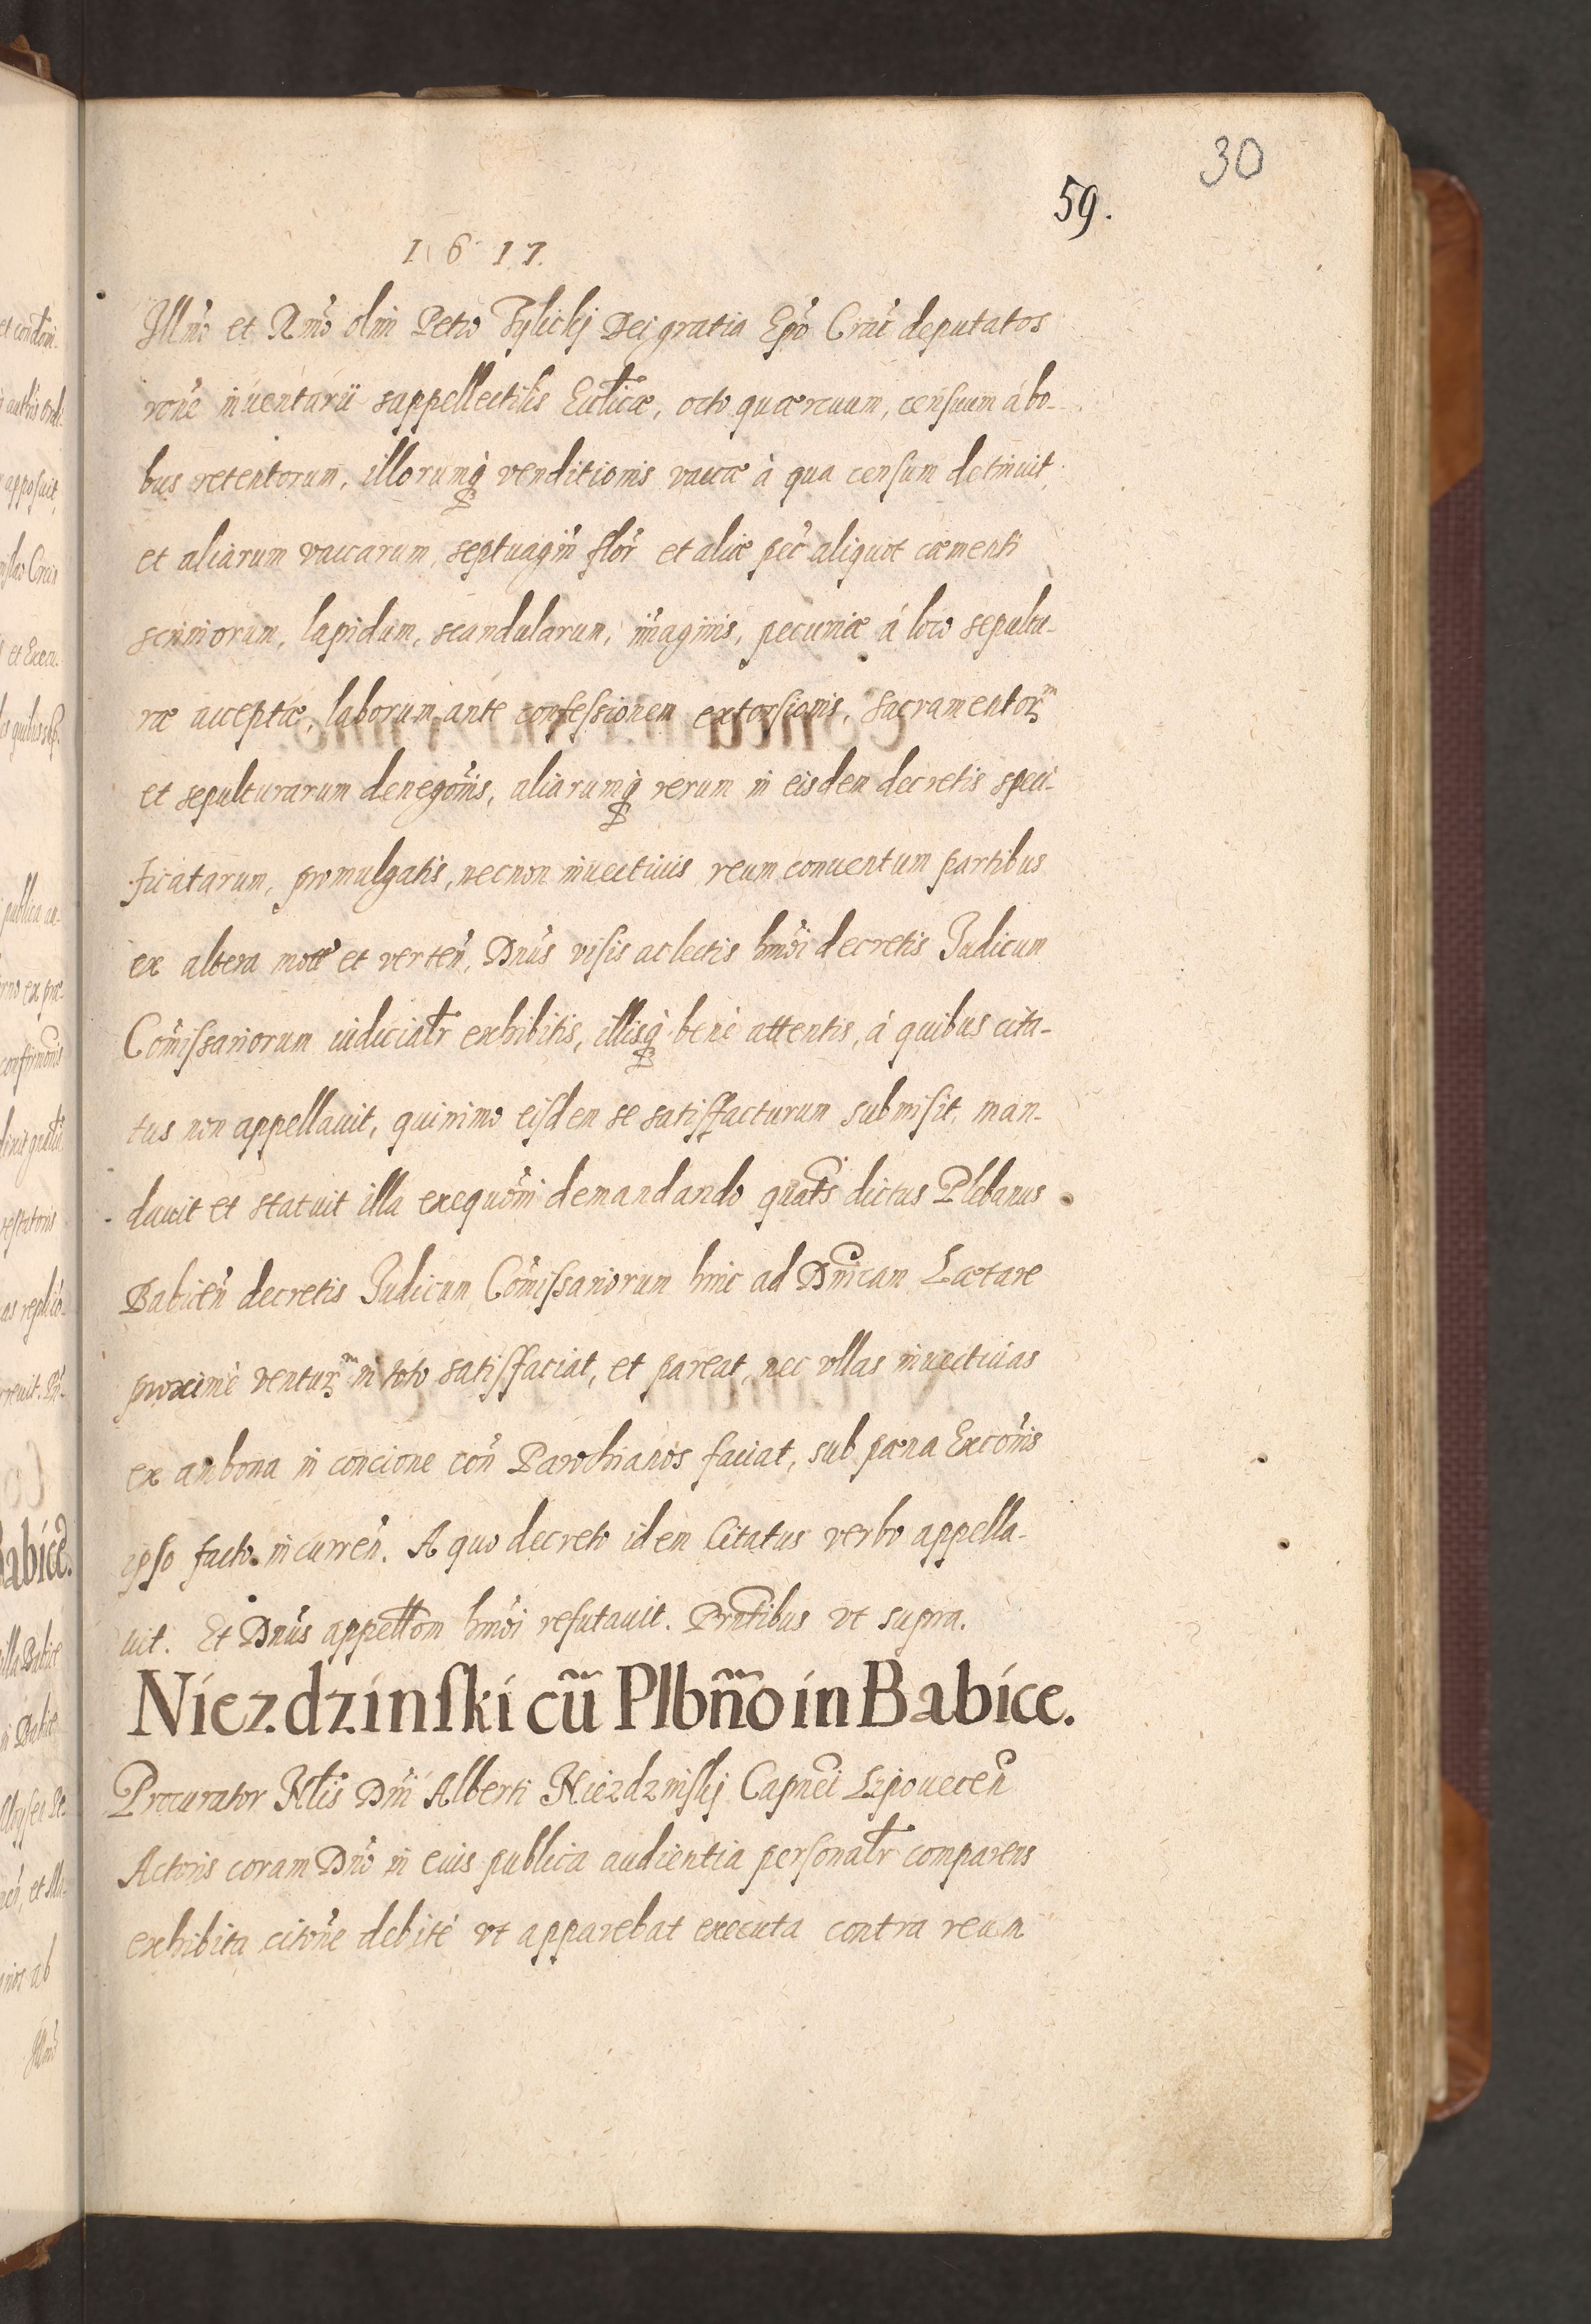 30
59.
1617.
Illmo et Rmo olim Petro Tylickj Dei gratia Epo Crac deputatos
rone inuentarii suppellectilis Ecclicæ, octo quærcuum, censuum à bo-
bus retentorum, illorumq̃ venditionis vaccæ à qua censum detinuit,
et aliarum vaccarum, septuagin flor et aliæ pec aliquot cæmenti
scriniorum, lapidum, scandularum, imaginis, pecuniæ á loco sepultu-
ræ acceptæ, laborum ante confessionem extorsionis, Sacramentorm
et sepulturarum denegonis, aliarumq̃ rerum in eisdem decretis speci-
ficatarum, promulgatis, necnon inuectiuis reum conuentum partibus
ex altera mota et verten, Dnus visis ac lectis hmoi decretis Judicum
Comissariorum iudicialr exhibitis, illisq̃ benè attentis, á quibus cita-
tus non appellauit, quinimo eisdem se satisfacturum submisit, man-
dauit et statuit illa exequoni demandando quats dictus Plebanus
Babicen decretis Judicum Comissariorum hinc ad Dnicam Lætare
proximè venturm in toto satisfaciat, et pareat, nec vllas inuectiuas
ex ambona in concione con Parochianos faciat, sub pæna Exconis
ipso facto incurren. A quo decreto idem Citatus verbo appella-
uit. Et Dnus appellom hmoi refutauit. Prntibus vt supra.
Niezdzinski cũ Plbño in Babice.
Procurator Nlis Dni Alberti Niezdzinskj Capnei Lipouecen
Actoris coram Dno in eius publica audientia personalr comparens
exhibita citone debité vt apparebat executa contra reum